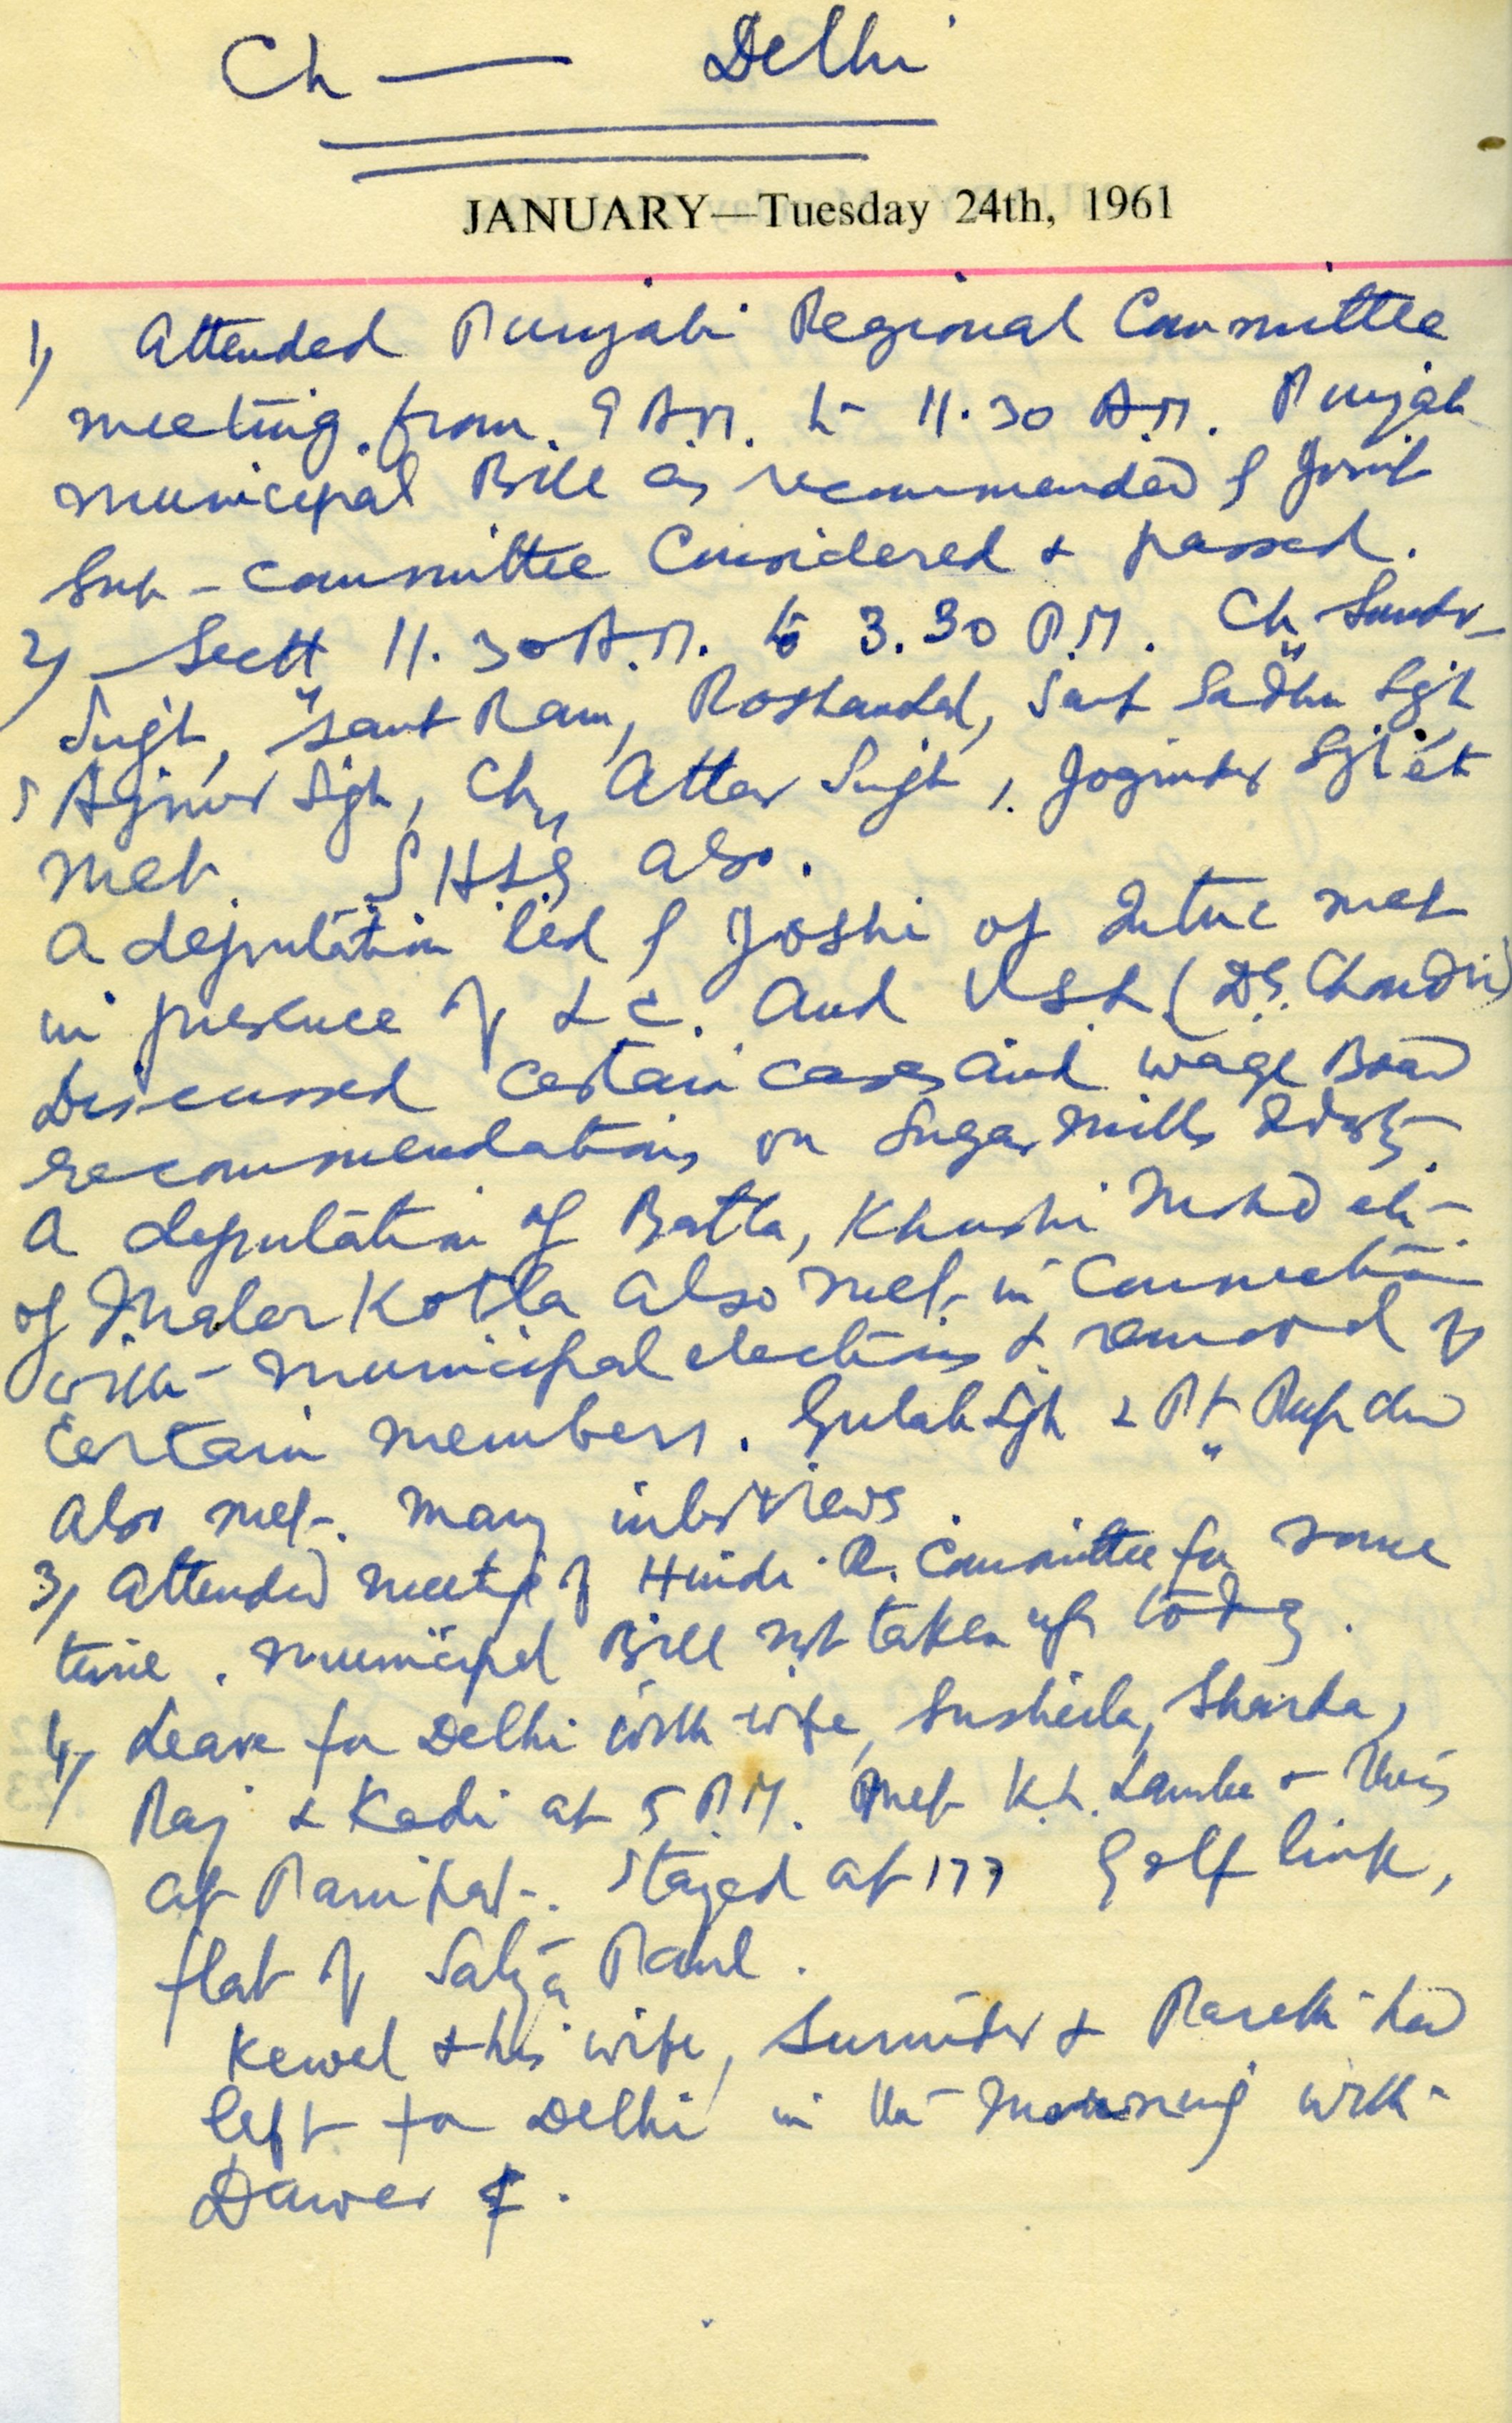 Ch — Delhi
JANUARY—Tuesday 24th, 1961
1) Attended Punjabi Regional Committee
meeting from 9 A.M. to 11.30 A.M. Punjab
Municipal Bill as recommended by Joint
Sub-committee Considered & passed.
2) Sectt 11.30 A.M. to 3.30 P.M. Ch. Sundr
Singh, Sant Ram, Roshanlal, Sant Sadhu Sgh
S Ajmer Sgh, Ch. Attar Singh, Joginder Sgh etc
met. also.
A deputation led by Joshi of Intuc met
in presence of L.C. and (D.S. Chaudri)
Discussed certain cases and wage Board
recommendations on Sugar Mills
A deputation of Batla, Khushi Mohd etc
of Maler Kotla also met in Connection
with Municipal elections & removal of
certain members. Gulab Sgh & Pt. Rup
also met. Many interviews.
3) Attended meetg of Hindi R. Committee for some
time. Municipal Bill not taken up today.
4) Leave for Delhi with wife, Susheila, Sharda,
Raj & Kedi at 5 P.M. Met K.L. &
at Panipat. Stayed at 177 Golf link,
flat of Satya Paul.
Kewel & his wife, Surinder & had
left for Delhi in the Morning with
Dawer